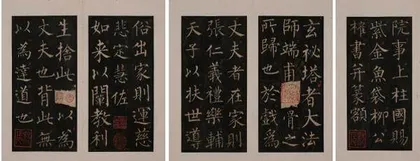 院事上柱國賜
紫金魚袋柳公
權書并篆額
玄秘塔者大法
師端甫骨之
所歸也於戲
丈夫者在家則
張仁義禮樂輔
天子以扶世導
俗出家則運慈
悲定慧佐
如來以闡教利
生捨此以為
丈夫也背此無
以為達道也